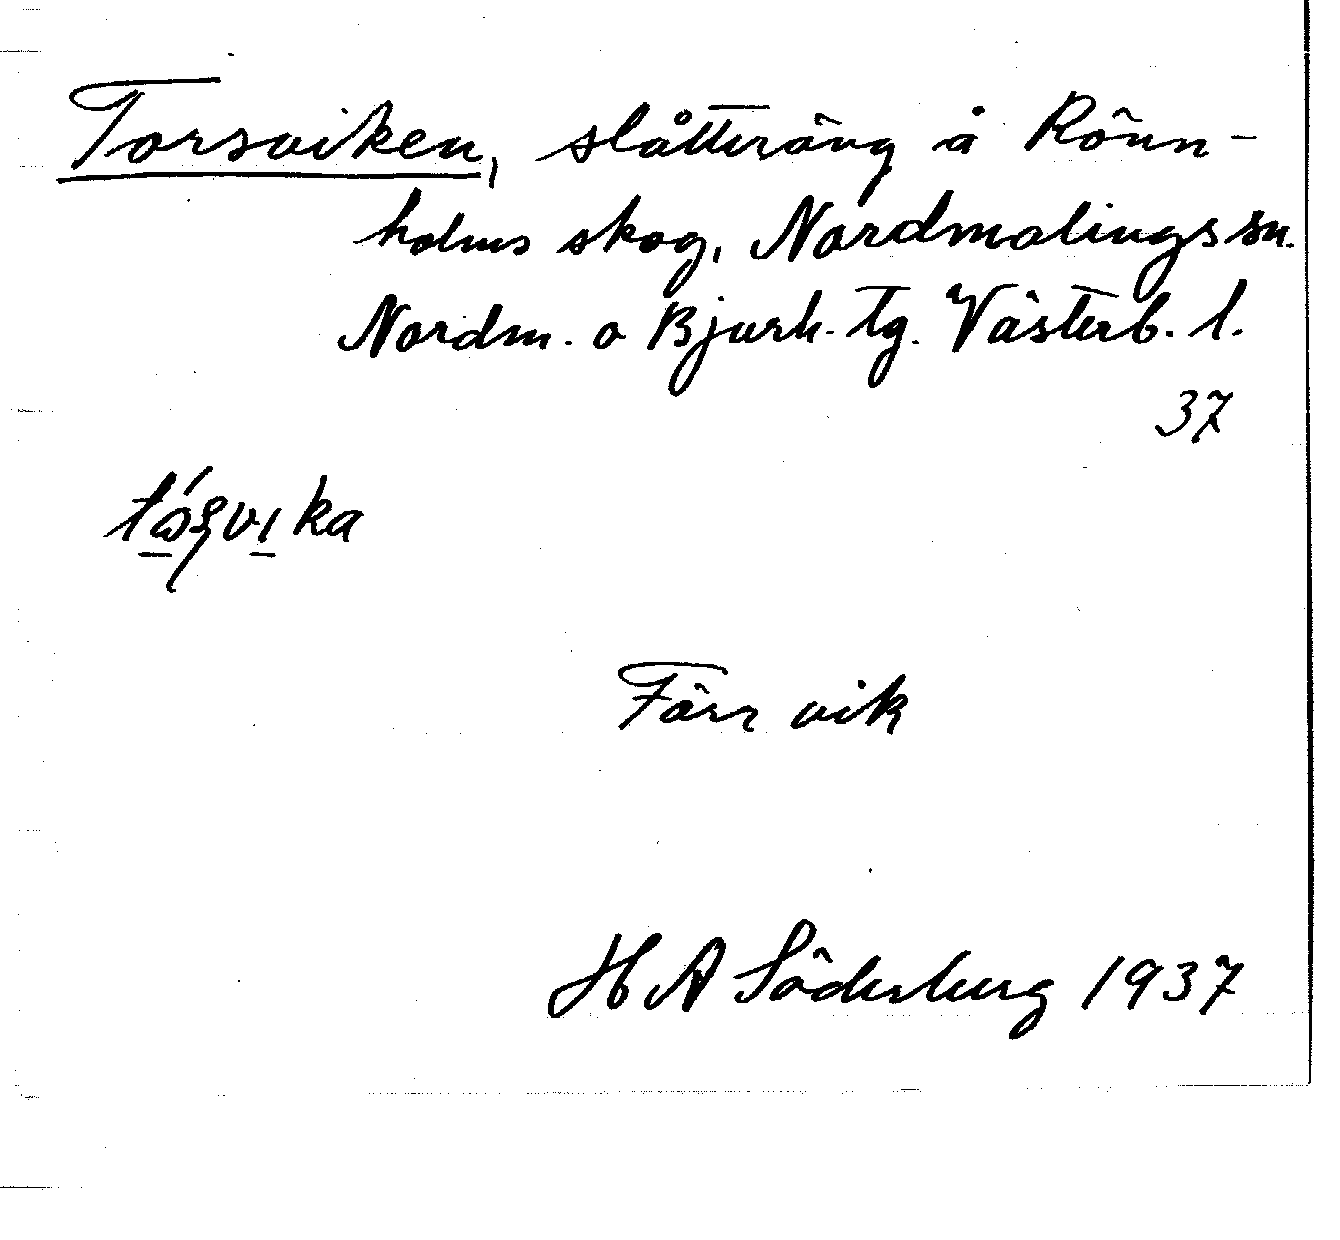 Torsviken, slåtteräng å Rönn-
holms skog, Nordmalings sn.
Nordm. o Bjurh. Tg. Västerb. l.
37
vik
H A Söderberg 1937